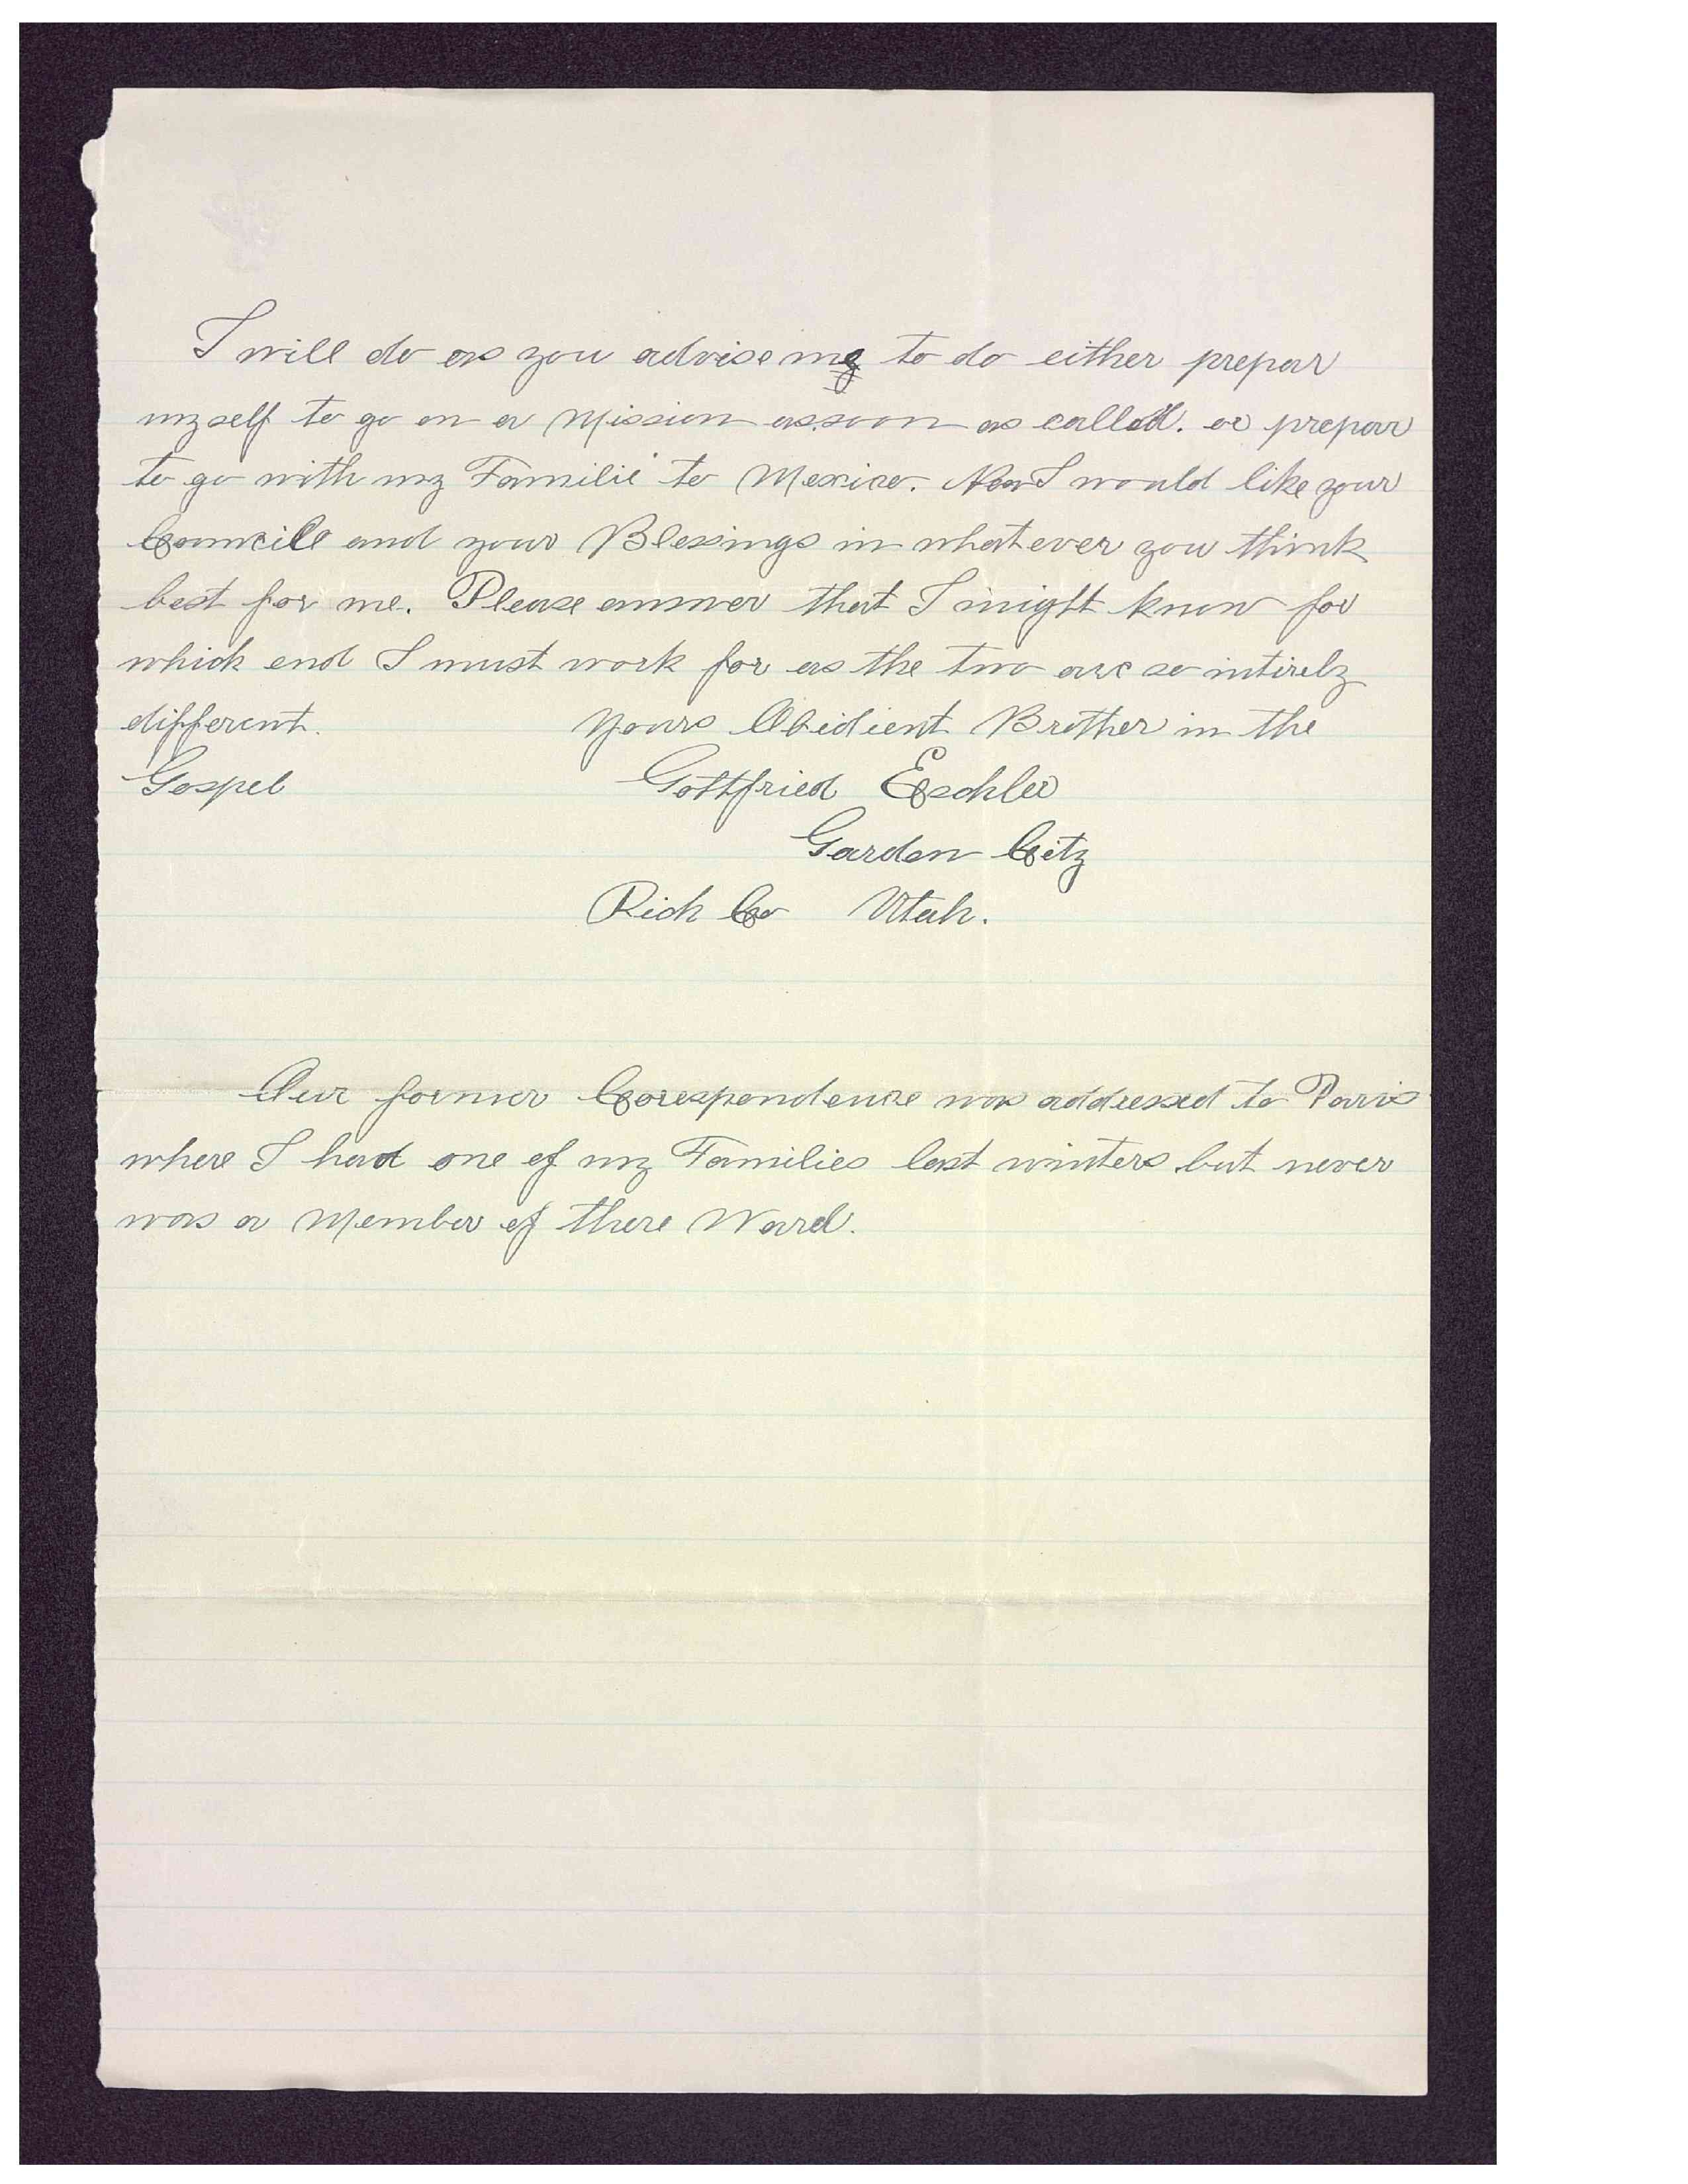 I will do as you advise me to do either prepar
myself to go on a Mission assoon as called. or prepar
to go with my Familie to Mexico. Now I would like your
Councill and your Blessings in whatever you think
best for me. Please answer that I might know for
which end I must work for as the two are so intirely
different. Yours Obidient Brother in the
Gospel Gottfried Eschler
Garden City
Rich Co Utah.
Our former Corespondence was addressed to Paris
where I had one of my Families last winters but never
was a Member of there Ward.